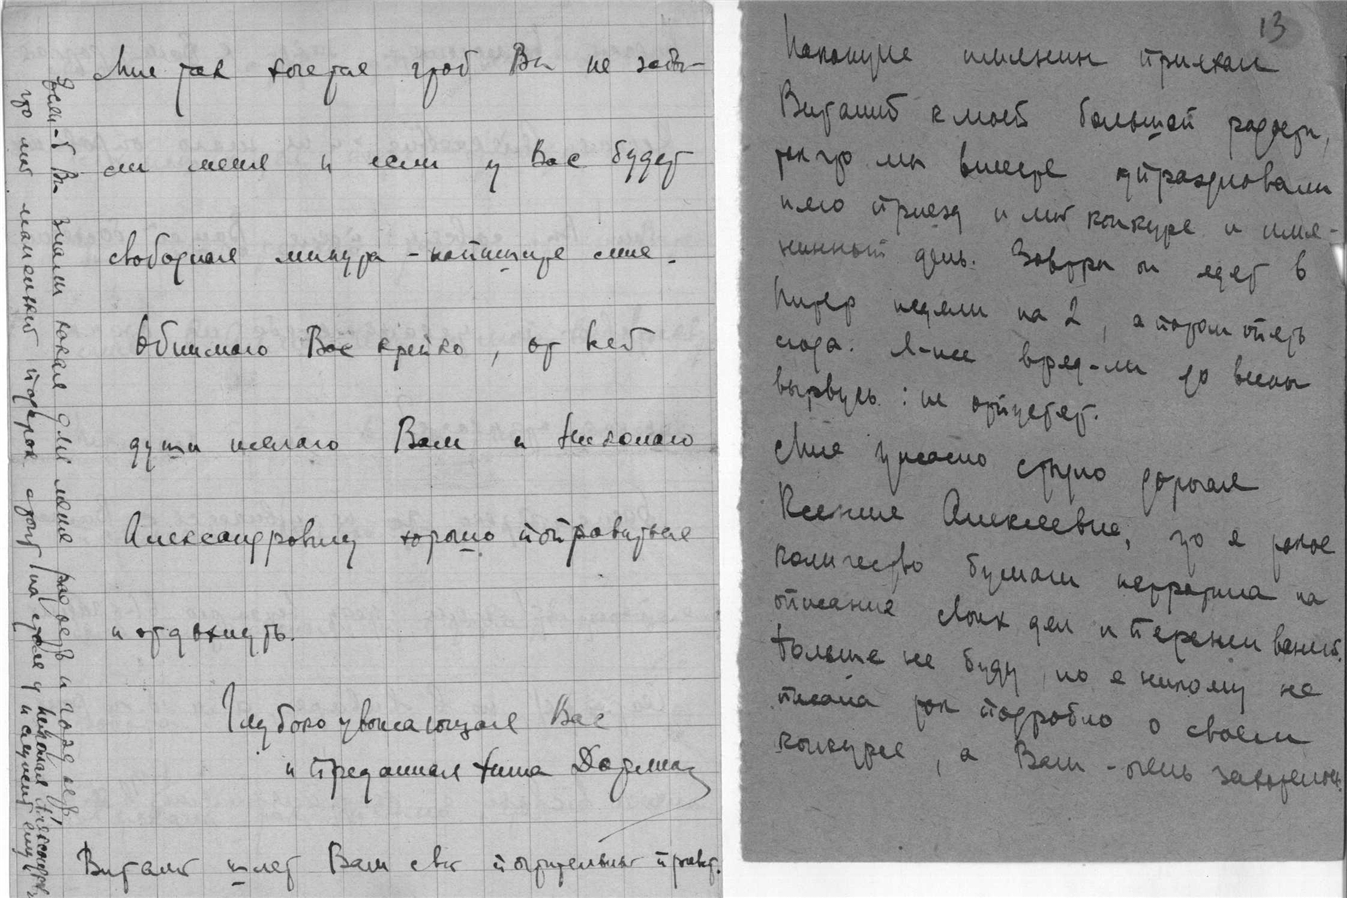 Мне так хочется чтоб Вы не забы-
ли меня и если у Вас будет
свободная минута - напишите мне.
Обнимаю Вас крепко, от всей
души желаю Вам и Николаю
Александровичу хорошо поправиться
и отдохнуть.
Глубокоуважающая Вас
и преданная Нина Дорлиак
Виталий шлет Вам свой почтительный привет.
Если-б Вы знали какая для меня радость и гордость
что мой маленький подарок стоит на столе у Николая Александровича
и служит ему
13
Накануне именин приехал
Виталий к моей большой радости,
так что мы вместе отпраздновали
и его приезд и мой конкурс и име-
нинный день. Завтра он едет в
Питер недели на 2, а потом опять
сюда. Я-же вряд-ли до весны
вырвусь: не отпустят.
Мне ужасно стыдно дорогая
Ксения Алексеевна, что я такое
количество бумаги потратила на
описание своих дел и переживаний.
Больше не буду, но я никому не
писала так подробно о своем
конкурсе, а Вам - очень захотелось.